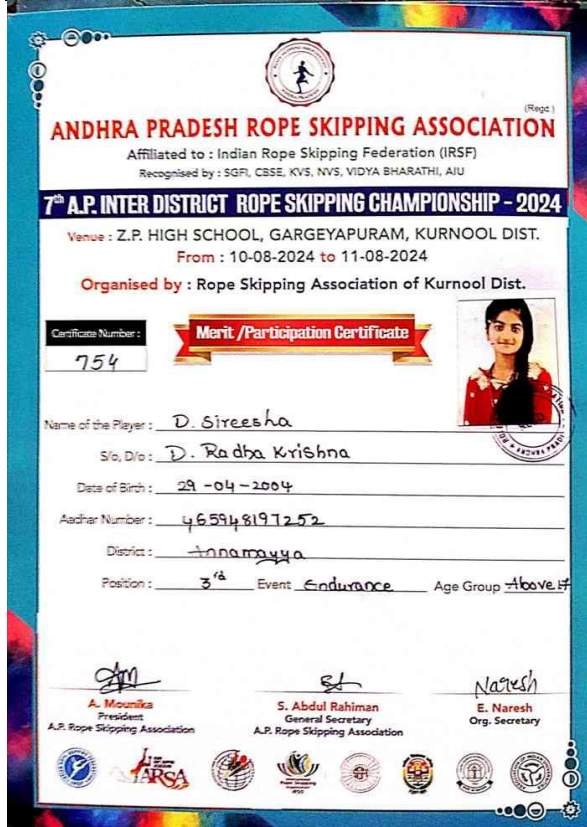 (Regd.)
ANDHRA PRADESH ROPE SKIPPING ASSOCIATION
Affiliated to : Indian Rope Skipping Federation (IRSF)
Recognised by : SGFI, CBSE, KVS, NVS, VIDYA BHARATHI, AIU
7th A.P. INTER DISTRICT ROPE SKIPPING CHAMPIONSHIP - 2024
Venue : Z.P. HIGH SCHOOL, GARGEYAPURAM, KURNOOL DIST.
From : 10-08-2024 to 11-08-2024
Organised by : Rope Skipping Association of Kurnool Dist.
Certificate Number :
754
Merit /Participation Certificate
Name of the Player : D. Sireesha
S/o, D/o : D. Radha Krishna
Date of Birth : 29-04-2004
Aadhar Number : 465948197252
District : Annamayya
Position : 3rd Event Endurance Age Group Above 17
Naresh
A. Mounika
President
A.P. Rope Skipping Association
S. Abdul Rahiman
General Secretary
A.P. Rope Skipping Association
E. Naresh
Org. Secretary
ARSA